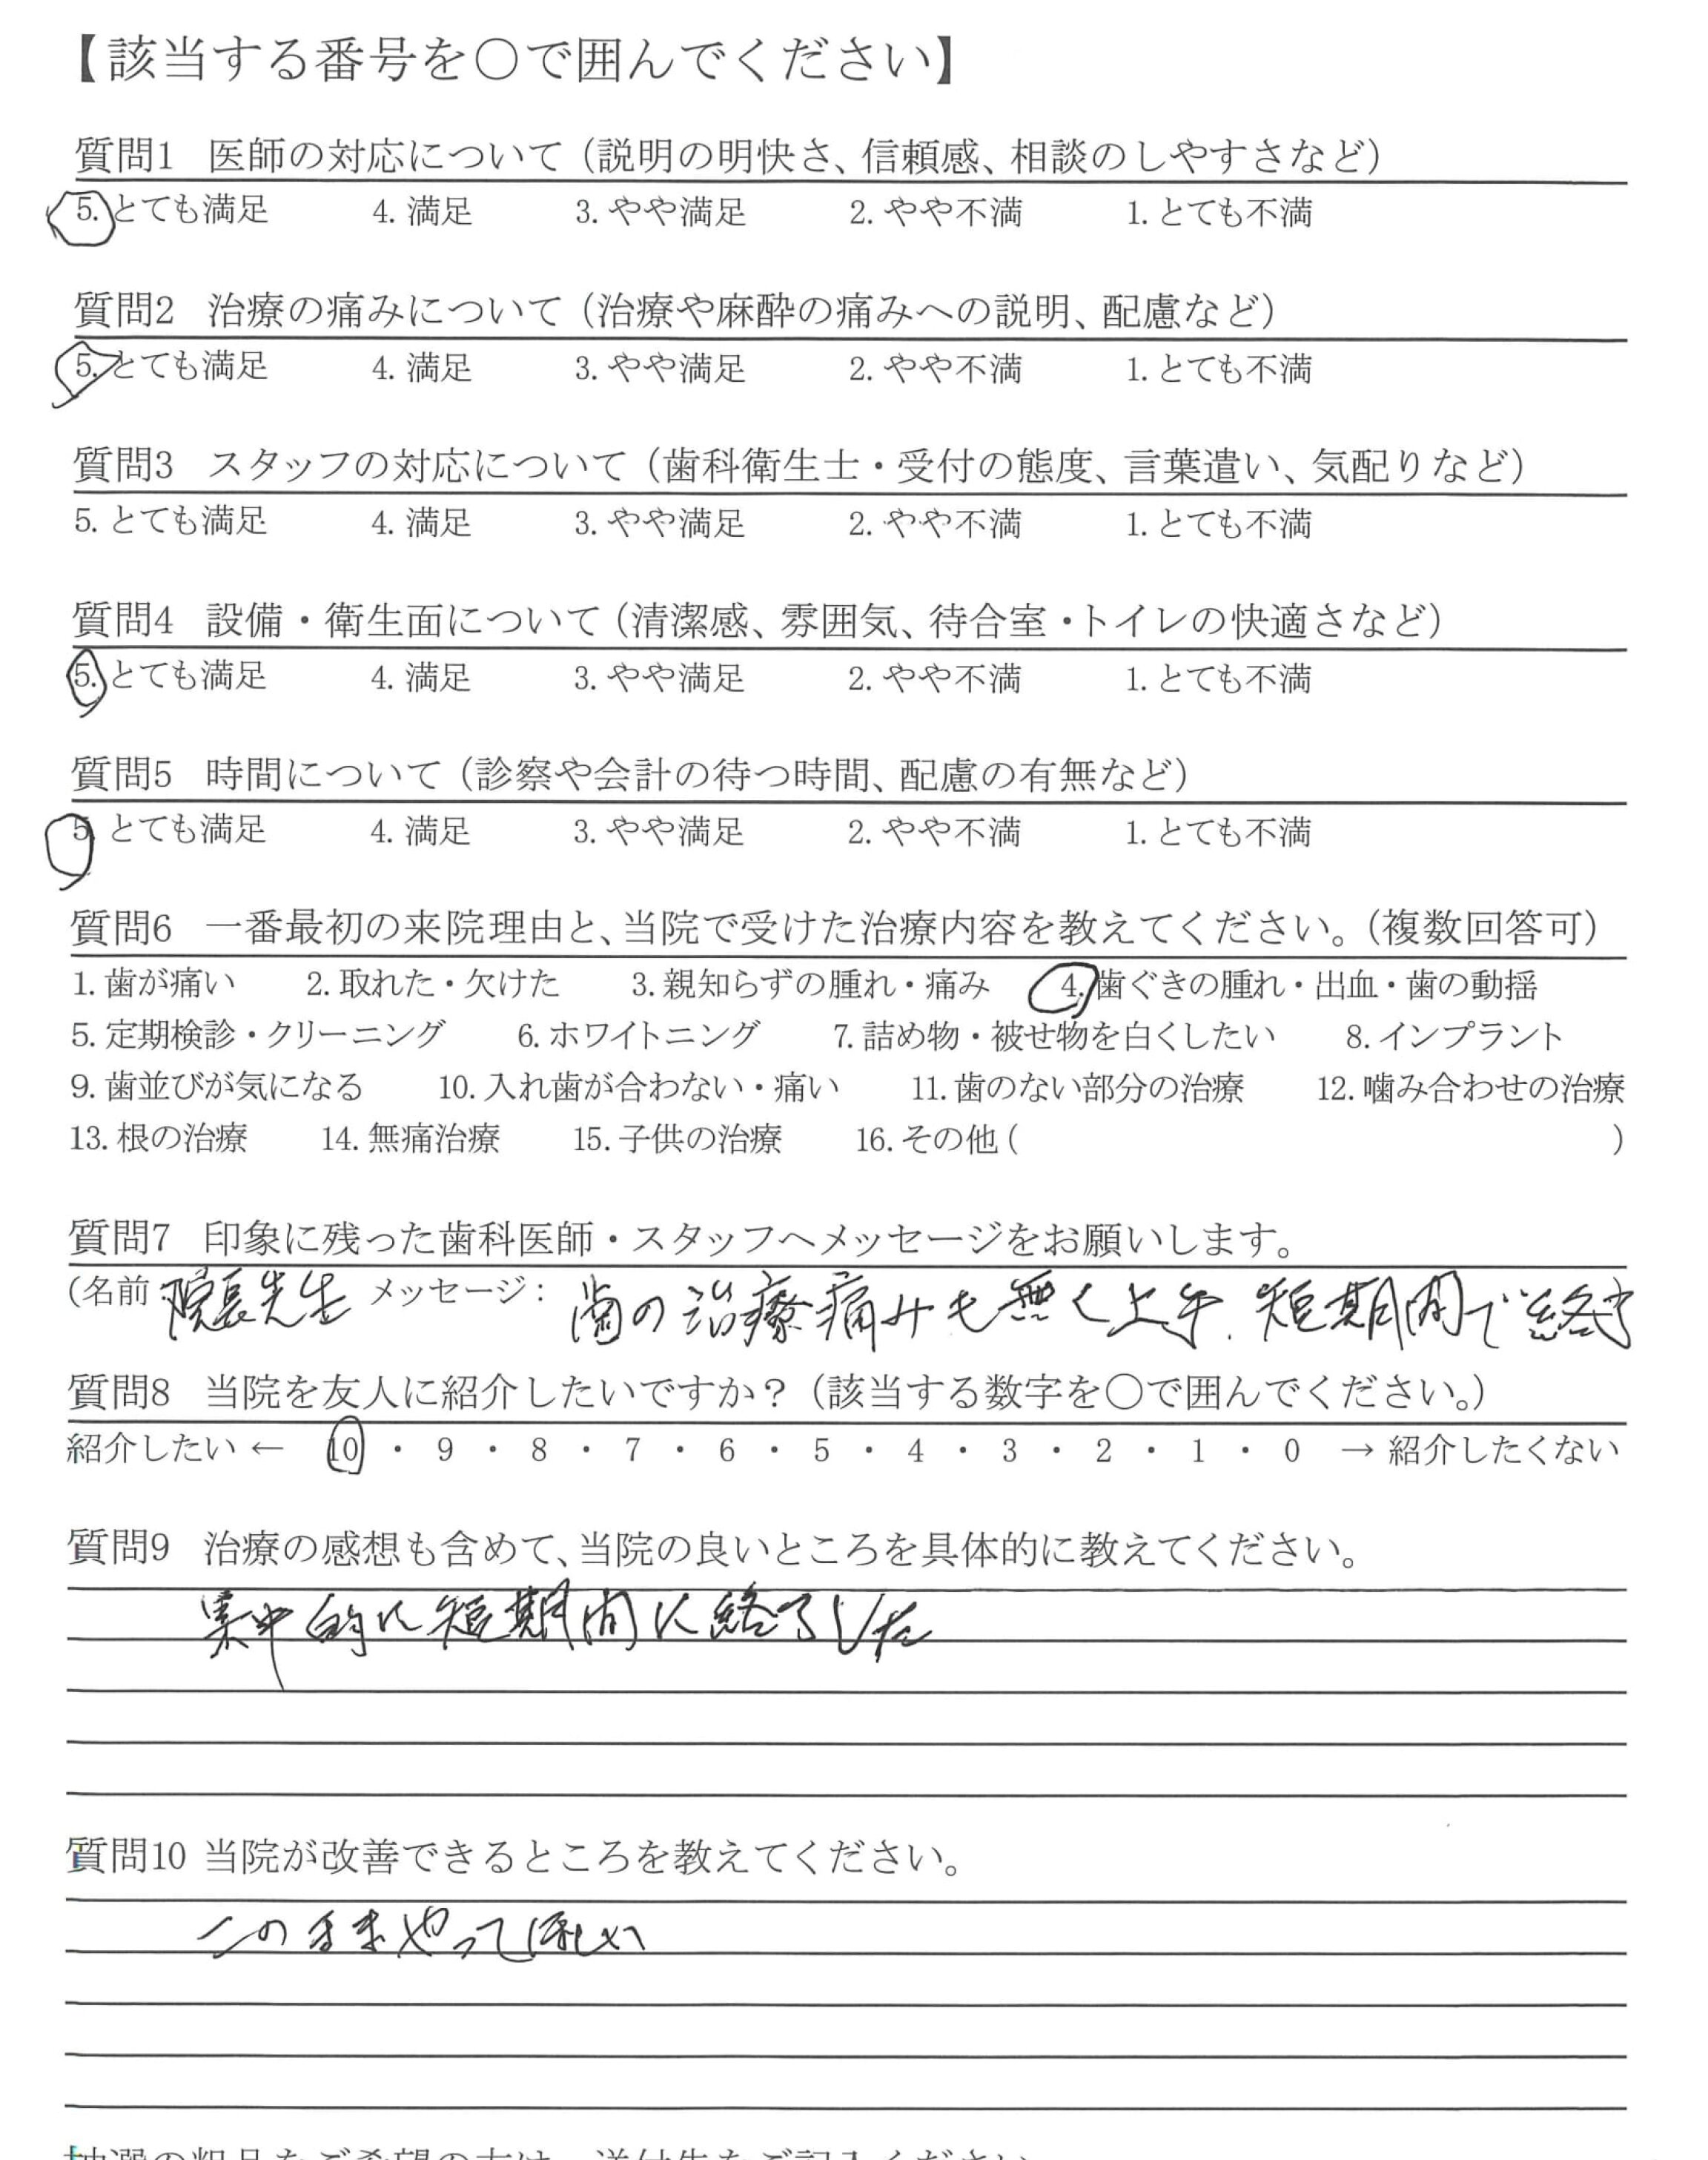 【該当する番号を○で囲んでください】
質問1 医師の対応について（説明の明快さ、信頼感、相談のしやすさなど）
5. とても満足 4. 満足 3. やや満足 2. やや不満 1. とても不満
質問2 治療の痛みについて（治療や麻酔の痛みへの説明、配慮など）
5. とても満足 4. 満足 3. やや満足 2. やや不満 1. とても不満
質問3 スタッフの対応について（歯科衛生士・受付の態度、言葉遣い、気配りなど）
5. とても満足 4. 満足 3. やや満足 2. やや不満 1. とても不満
質問4 設備・衛生面について（清潔感、雰囲気、待合室・トイレの快適さなど）
5. とても満足 4. 満足 3. やや満足 2. やや不満 1. とても不満
質問5 時間について（診察や会計の待つ時間、配慮の有無など）
5. とても満足 4. 満足 3. やや満足 2. やや不満 1. とても不満
質問6 一番最初の来院理由と、当院で受けた治療内容を教えてください。（複数回答可）
1. 歯が痛い 2. 取れた・欠けた 3. 親知らずの腫れ・痛み 4. 歯ぐきの腫れ・出血・歯の動揺
5. 定期検診・クリーニング 6. ホワイトニング 7. 詰め物・被せ物を白くしたい 8. インプラント
9. 歯並びが気になる 10. 入れ歯が合わない・痛い 11. 歯のない部分の治療 12. 噛み合わせの治療
13. 根の治療 14. 無痛治療 15. 子供の治療 16. その他 ( )
質問7 印象に残った歯科医師・スタッフへメッセージをお願いします。
(名前 : 院長先生 メッセージ : 歯の治療痛みも無く上手. 短期間で終了
質問8 当院を友人に紹介したいですか？（該当する数字を○で囲んでください。）
紹介したい ← 10 ・ 9 ・ 8 ・ 7 ・ 6 ・ 5 ・ 4 ・ 3 ・ 2 ・ 1 ・ 0 → 紹介したくない
質問9 治療の感想も含めて、当院の良いところを具体的に教えてください。
集中的に短期間に終了した
質問10 当院が改善できるところを教えてください。
このままやってほしい
抽選の粗品をご希望の方は、送付先をご記入ください